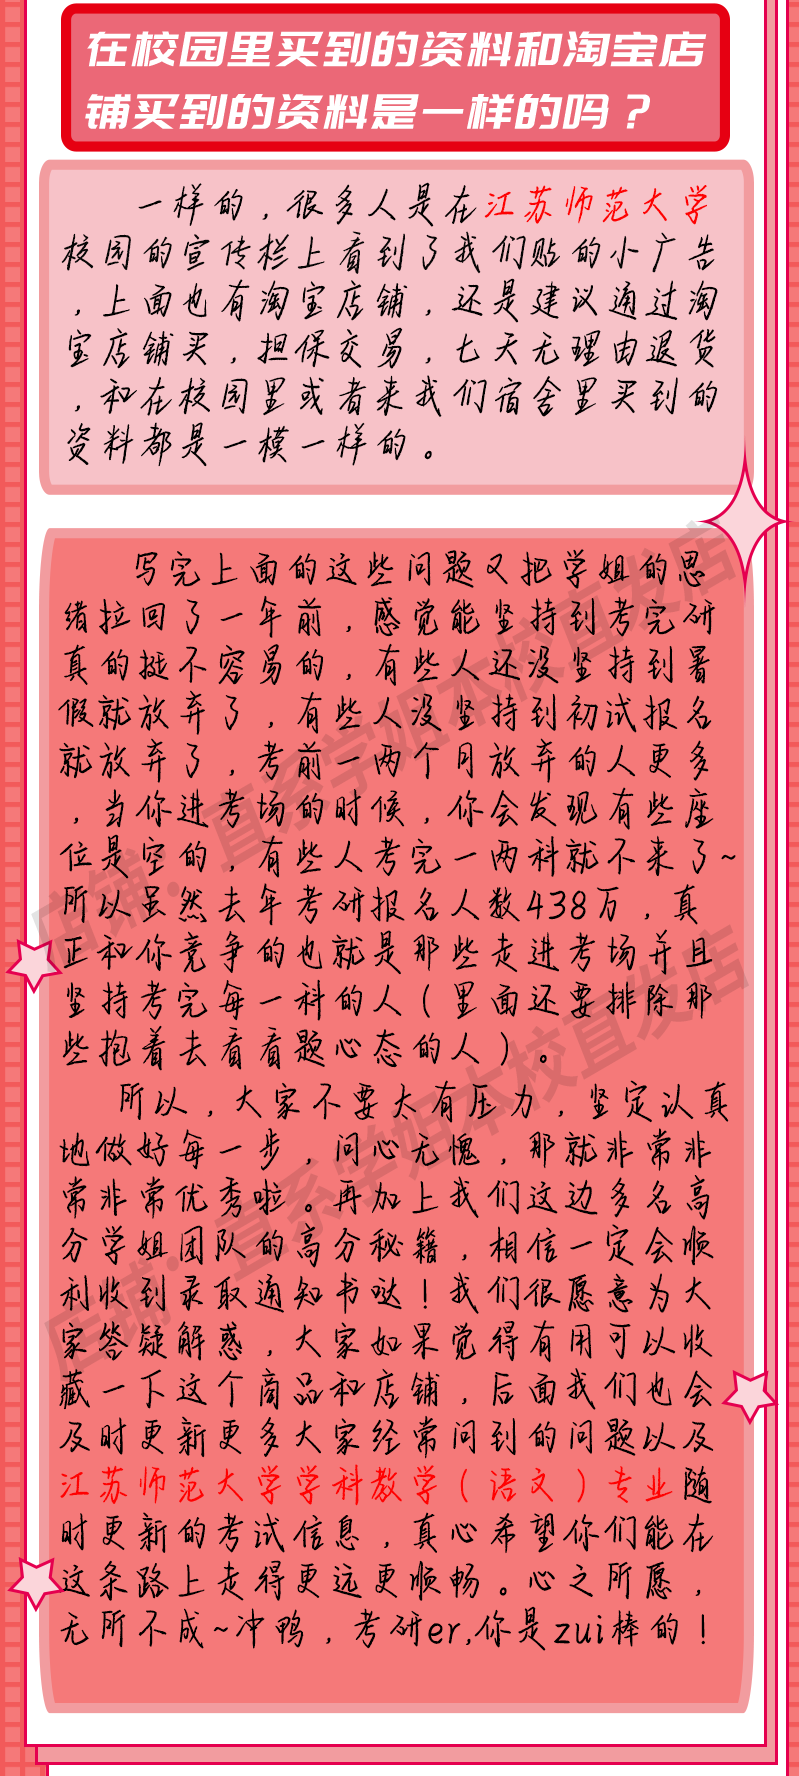 在校园里买到的资料和淘宝店
铺买到的资料是一样的吗？
一样的，很多人是在江苏师范大学
校园的宣传栏上看到了我们贴的小广告
，上面也有淘宝店铺，还是建议通过淘
宝店铺买，担保交易，七天无理由退货
，和在校园里或者来我们宿舍里买到的
资料都是一模一样的。
写完上面的这些问题又把学姐的思
绪拉回了一年前，感觉能坚持到考完研
真的挺不容易的，有些人还没坚持到暑
假就放弃了，有些人没坚持到初试报名
就放弃了，考前一两个月放弃的人更多
，当你进考场的时候，你会发现有些座
位是空的，有些人考完一两科就不来了~
所以虽然去年考研报名人数438万，真
正和你竞争的也就是那些走进考场并且
坚持考完每一科的人（里面还要排除那
些抱着去看看题心态的人）。
所以，大家不要太有压力，坚定认真
地做好每一步，问心无愧，那就非常非
常非常优秀啦。再加上我们这边多名高
分学姐团队的高分秘籍，相信一定会顺
利收到录取通知书哒！我们很愿意为大
家答疑解惑，大家如果觉得有用可以收
藏一下这个商品和店铺，后面我们也会
及时更新更多大家经常问到的问题以及
江苏师范大学学科教学（语文）专业随
时更新的考试信息，真心希望你们能在
这条路上走得更远更顺畅。心之所愿，
无所不成~冲鸭，考研er,你是zui棒的！
店铺：直系学姐本校直发店
店铺：直系学姐本校直发店